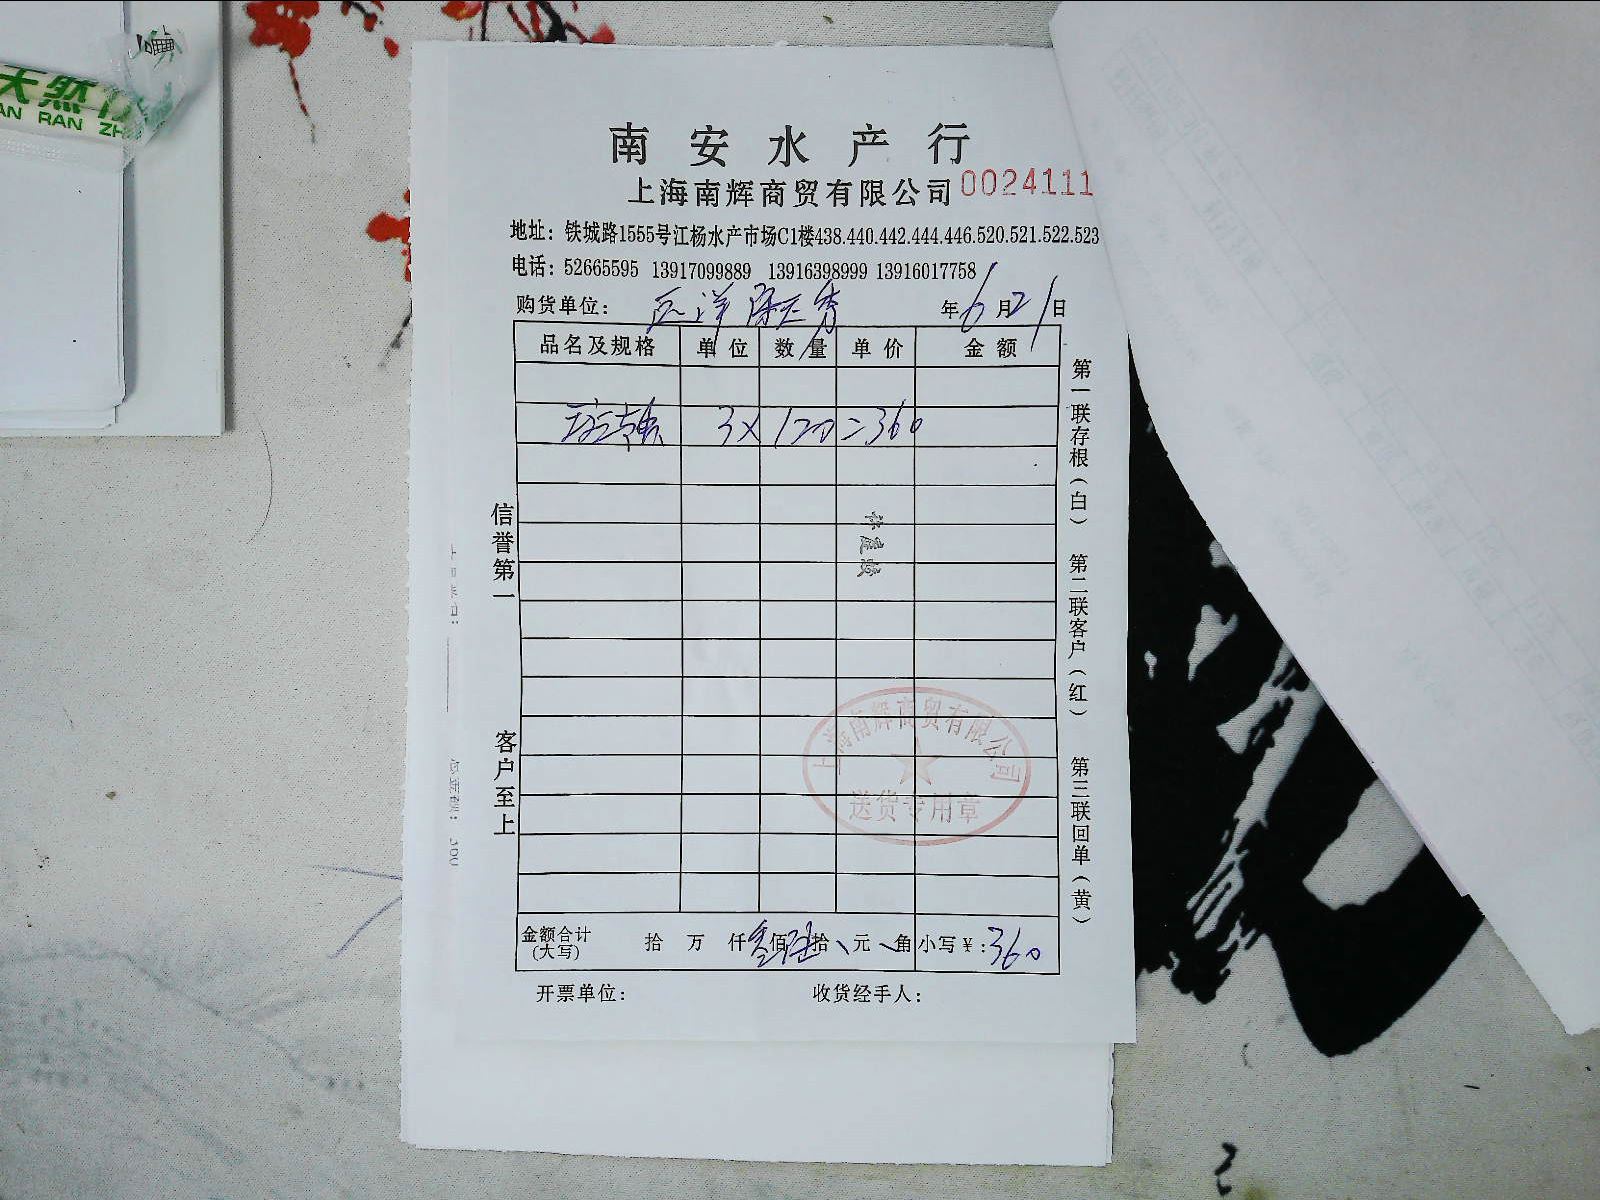 天然竹
AN RAN ZH
南安水产行
上海南辉商贸有限公司 0024111
地址：铁城路1555号江杨水产市场C1楼438.440.442.444.446.520.521.522.523
电话：52665595 13917099889 13916398999 13916017758
购货单位： 年6月21日
品名及规格 单位 数量 单价 金额
3×120=360
信誉第一
客户至上
第一联存根(白) 第二联客户(红) 第三联回单(黄)
上海南辉商贸有限公司
送货专用章
金额合计(大写) 拾 万 仟叁佰陆拾、元、角 小写¥：360
开票单位： 收货经手人：